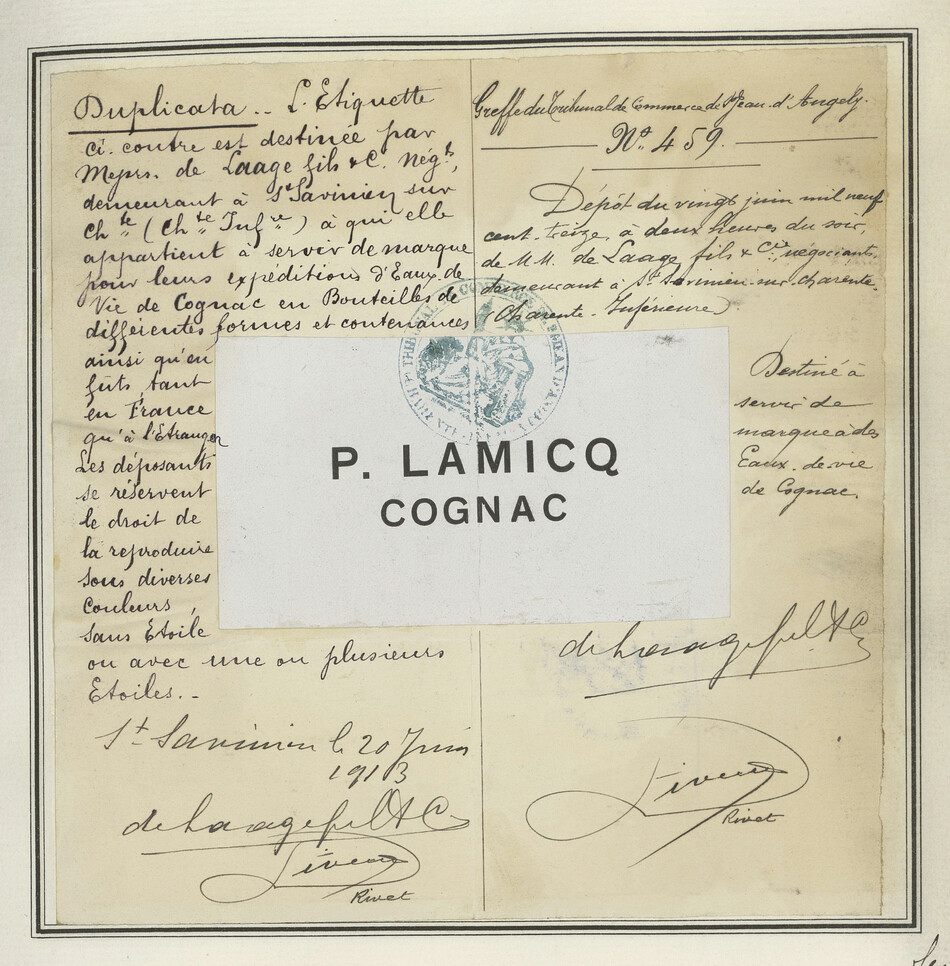 Duplicata.. L'Etiquette
ci-contre est destinée par
Mrs. de Laage fils & C. Négts,
demeurant à St Savinien sur
Chte (Chte Infre) à qui elle
appartient à servir de marque
pour leurs expéditions d'Eaux-de-
Vie de Cognac en Bouteilles de
différentes formes et contenances
ainsi qu'en
fûts, tant
en France
qu'à l'Etranger
Les déposants
se réservent
le droit de
la reproduire
sous diverses
couleurs,
sans Etoile
ou avec une ou plusieurs
Etoiles.-
St Savinien le 20 Juin
1913
de Laage fils & C
Rivet
Greffe du Tribunal de Commerce de St Jean-d'Angely.
No. 459.
Dépôt du vingt juin mil neuf
cent-treize, à deux heures du soir,
de M.M. de Laage fils & Cie, négociants,
demeurant à St Savinien-sur-Charente.
(Charente-Inférieure).
P. LAMICQ
COGNAC
Destiné à
servir de
marque à des
Eaux-de-vie
de Cognac.
de Laage fils & C
Rivet